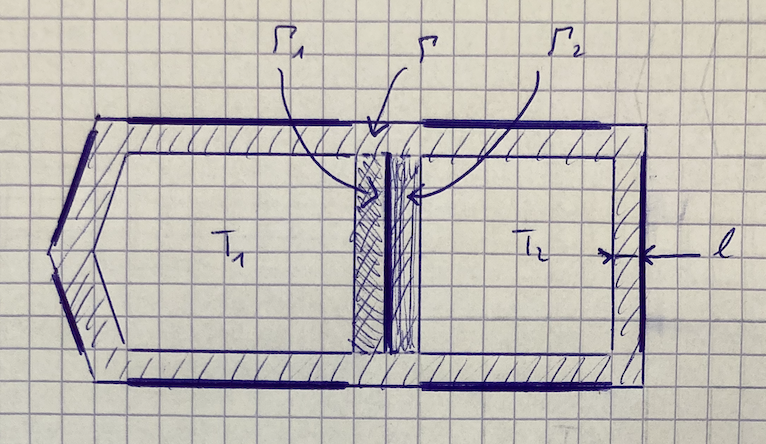 Γ₁ Γ Γ₂
T₁ T₂ l